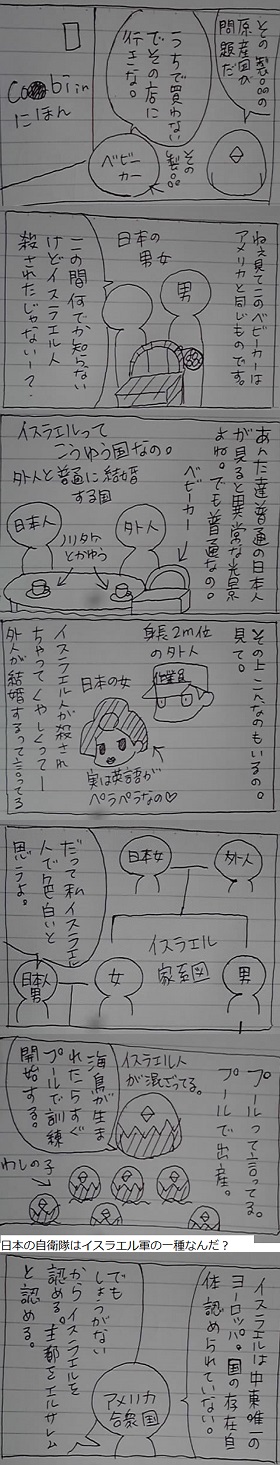 その製品の
原産国が
問題だ
うちで買わない
でその店に
行こな。
その
製品
ベビー
カー
にほん
ねぇ見てこのベビーカーは
アメリカと同じものです。
男
日本の
男女
この間何でか知らない
けどイスラエル人
殺されたじゃない！？
あんた達普通の日本人
が見ると異常な光景
よね。でも普通なの。
ベビーカー
イスラエルって
こうゆう国なの。
外人と普通に結婚
する国
日本人
ノリタケ
とかゆう
外人
その上こんなのもいるの。
見て。
身長2m位
の外人
作業員
日本の女
実は英語が
ペラペラなの♡
イスラエル人が殺され
ちゃってくやしくって
外人が結婚するって言ってる
外人
日本女
イスラエル
家系図
男
女
日本人
男
だって私イスラエル
人で色白いと
思うよ。
プールって言ってる。
プールで出産。
イスラエル人
が混ざってる。
海鳥が生ま
れたらすぐ
プールで訓練
開始する。
わしの子
日本の自衛隊はイスラエル軍の一種なんだ？
イスラエルは中東唯一の
ヨーロッパ。国の存在自
体認められていない。
アメリカ
合衆国
でも
しょうがない
からイスラエルを
認める。主都をエルサレム
と認める。